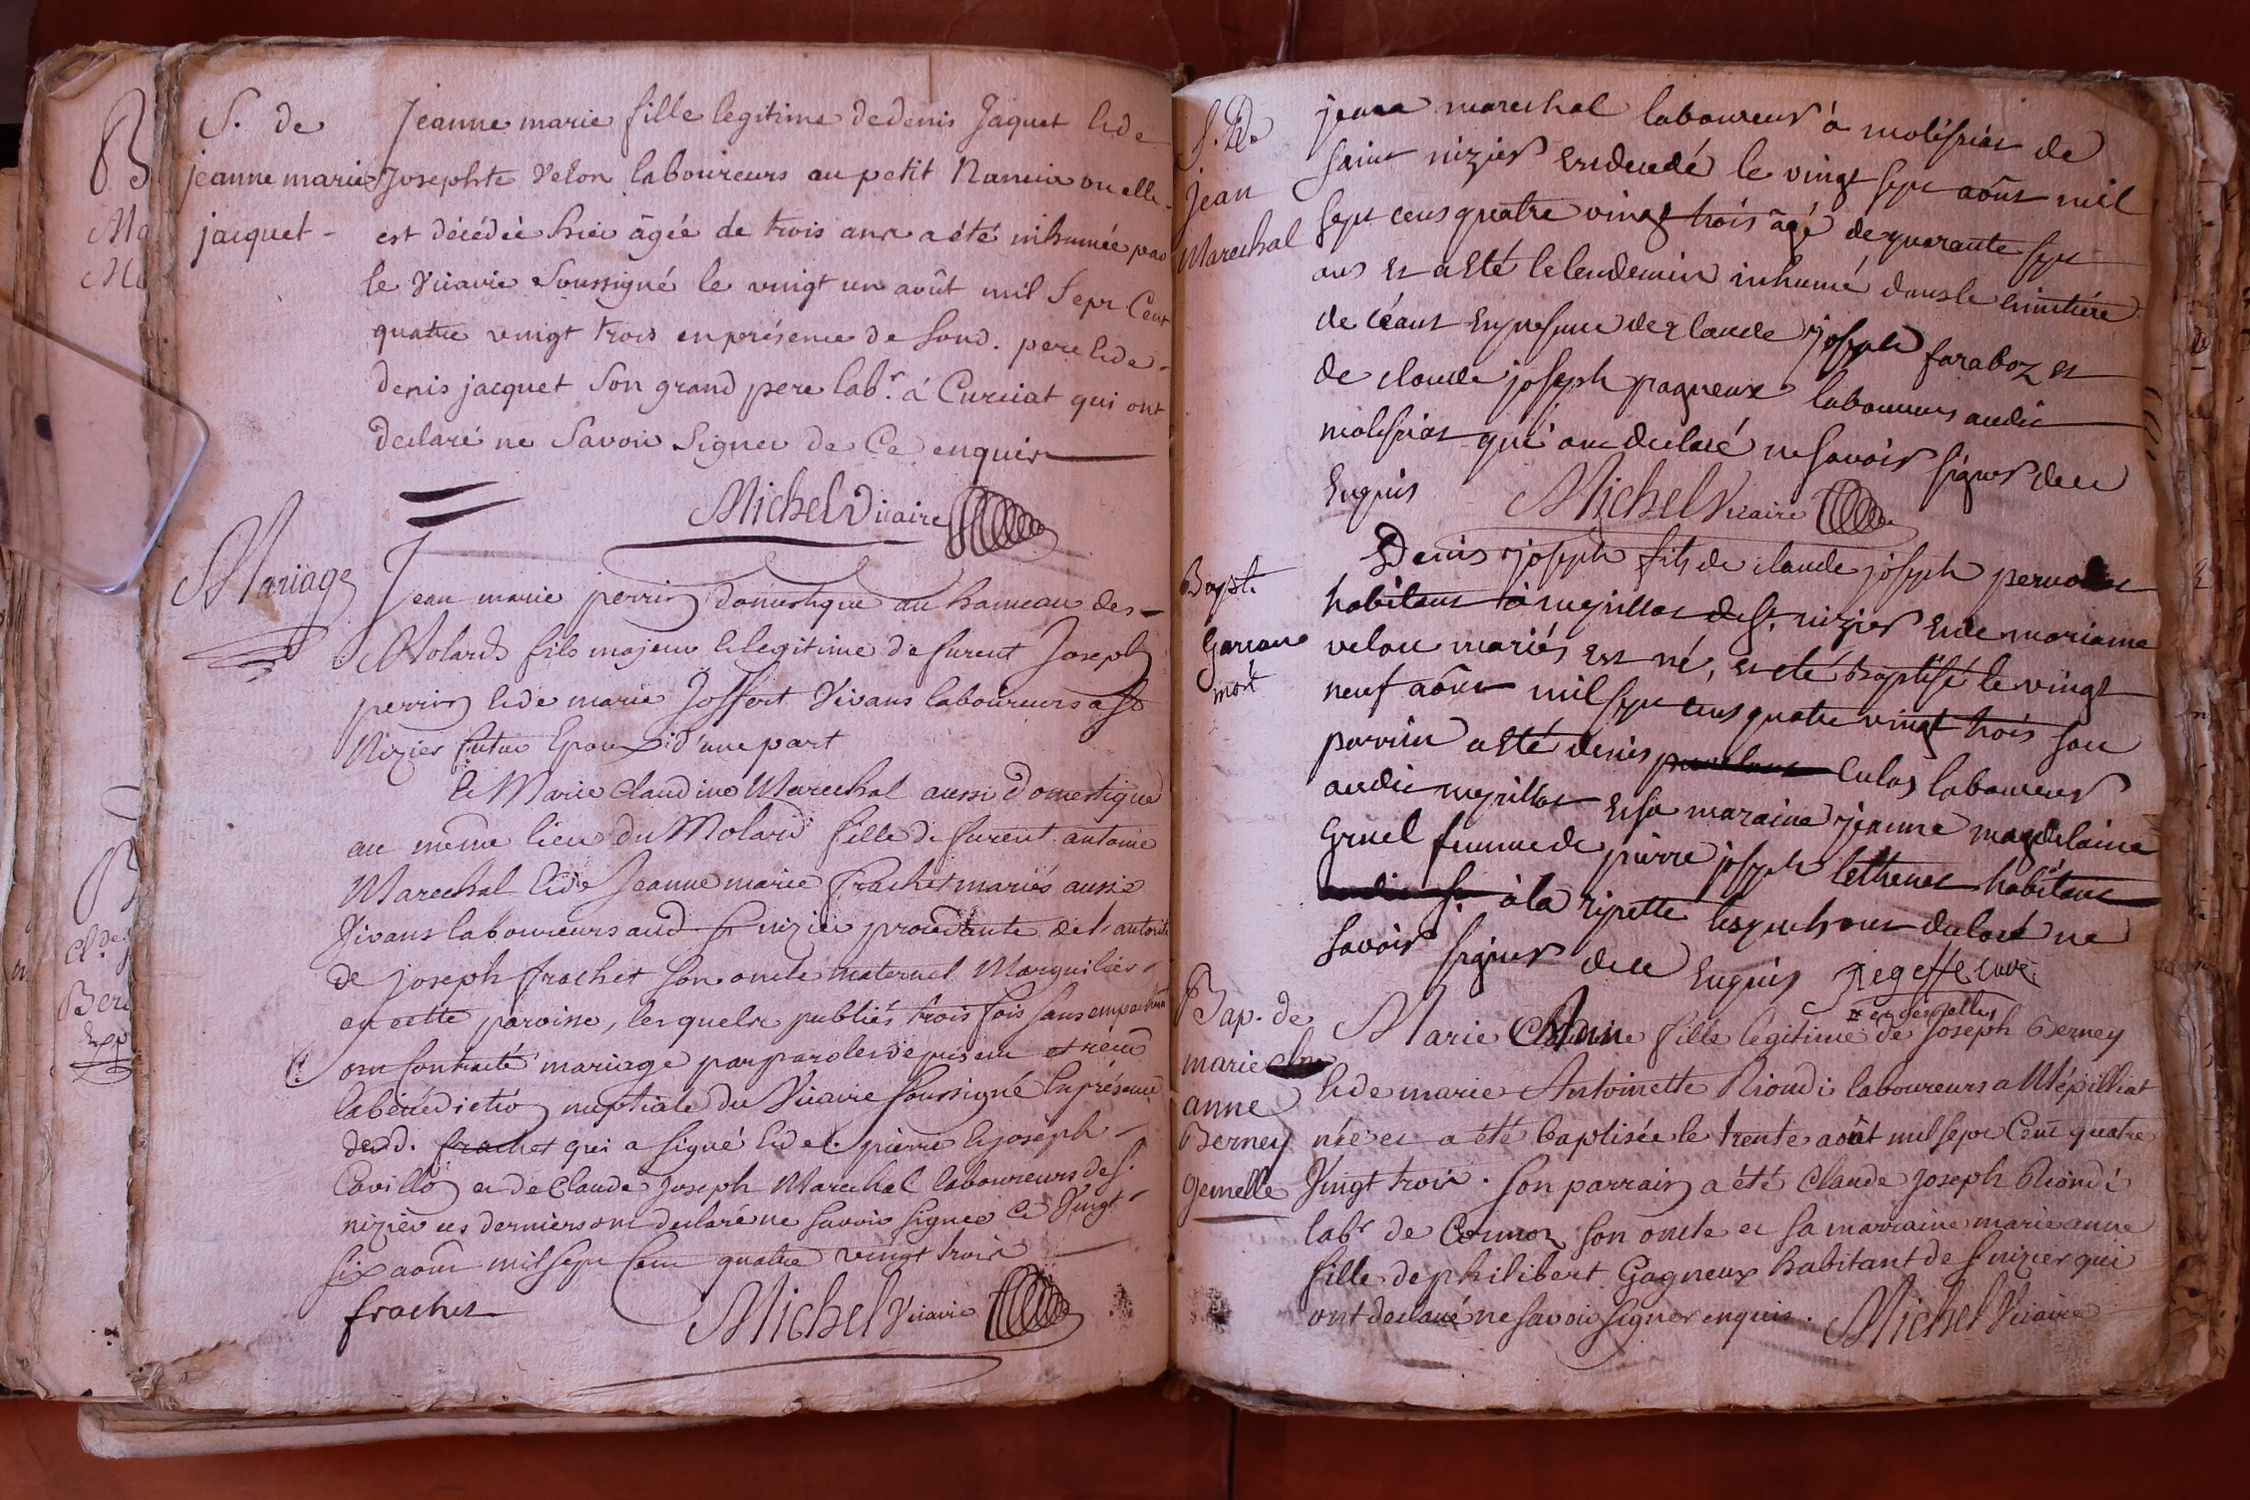 S. de
jeanne marie
jacquet -
Jeanne marie fille legitime de denis Jaquet & de
Josephte Velon laboureurs au petit Nancin ou elle
est décédée hier âgée de trois ans a été inhumée par
le Vicaire soussigné le vingt un août mil sept Cent
quatre vingt trois en présence de sond. pere & de
denis jacquet son grand pere labr. á Curciat qui ont
declaré ne savoir signer de Ce enquis
Michel Vicaire
Mariage
Jean marie perrin domestique au hameau des
Molards fils majeur & legitime de furent Joseph
perrin & de marie Joffert Vivans laboureurs a St
Nizier futur Epoux d'une part
& Marie Claudine Marechal aussi Domestique
au meme lieu du Molard fille de furent antoine
Marechal & de Jeanne marie frachet mariés aussi
Vivans laboureurs aud St nizier procedante de l'autorité
de joseph frachet son oncle maternel Marguilier
en cette paroisse, lesquels publiés trois fois sans empechem
ont Contracté mariage par paroles de présent et recu
la bénédiction nuptiale du Vicaire soussigné En présence
dud. frachet qui a signé & de pierre & joseph
Cavillon et de Claude Joseph Marechal laboureurs de St
nizier ces derniers ont declaré ne savoir signer Ce Vingt
six aout mil sept Cent quatre vingt trois
frachet
Michel Vicaire
S. De
Jean
Marechal
jean marechal laboureur á molifriat de
saint nizier est decedé le vingt sept août mil
sept cens quatre vingt trois âgé de quarante sept
ans et a eté le lendemain inhumé dans le cimetiére
de céans en presence de claude joseph faraboz et
de claude joseph pagneux laboureurs audit
molifriat qui ont declaré ne savoir signer de ce
Enquis
Michel Vicaire
Bapt.
Garcon
mort
Denis joseph fils de claude joseph
habitant á mepillat de St. nizier et de mariane
velon mariés est né, et eté baptisé le vingt
neuf aôut mil sept cens quatre vingt trois son
parrin a eté denis Culas laboureur
audit mepillat et sa maraine jeanne magdelaine
Gruel femme de pierre joseph lethenet habitant
à la ripette lesquels ont declaré ne
savoir signer de ce Enquis
curé
Bap. de
marie
anne
Berney
Gemelle
Marie fille legitime de Joseph Berney
& de marie Antoinette Riondi laboureurs a Mépilliat
née et a été baptisée le trente août mil sept Cent quatre
Vingt trois. Son parrain a été Claude Joseph Riondi
labr de Cormoz son oncle et sa marraine marie anne
fille de philibert Gagneux habitant de St nizier qui
ont declaré ne savoir signer enquis. Michel Vicaire